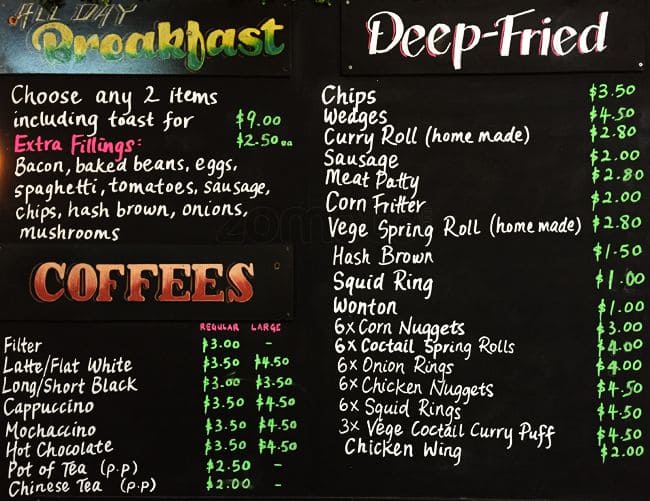 ALL DAY
Breakfast
Choose any 2 items
including toast for $9.00
Extra Fillings: $2.50 ea
Bacon, baked beans, eggs,
spaghetti, tomatoes, sausage,
chips, hash brown, onions,
mushrooms
COFFEES
REGULAR LARGE
Filter $3.00 -
Latte/Flat White $3.50 $4.50
Long/Short Black $3.00 $3.50
Cappuccino $3.50 $4.50
Mochaccino $3.50 $4.50
Hot Chocolate $3.50 $4.50
Pot of Tea (p.p) $2.50 -
Chinese Tea (p.p) $2.00 -
Deep-Fried
Chips $3.50
Wedges $4.50
Curry Roll (home made) $2.80
Sausage $2.00
Meat Patty $2.80
Corn Fritter $2.00
Vege Spring Roll (home made) $2.80
Hash Brown $1.50
Squid Ring $1.00
Wonton $1.00
6x Corn Nuggets $3.00
6x Coctail Spring Rolls $4.00
6x Onion Rings $4.00
6x Chicken Nuggets $4.50
6x Squid Rings $4.50
3x Vege Coctail Curry Puff $4.50
Chicken Wing $2.00